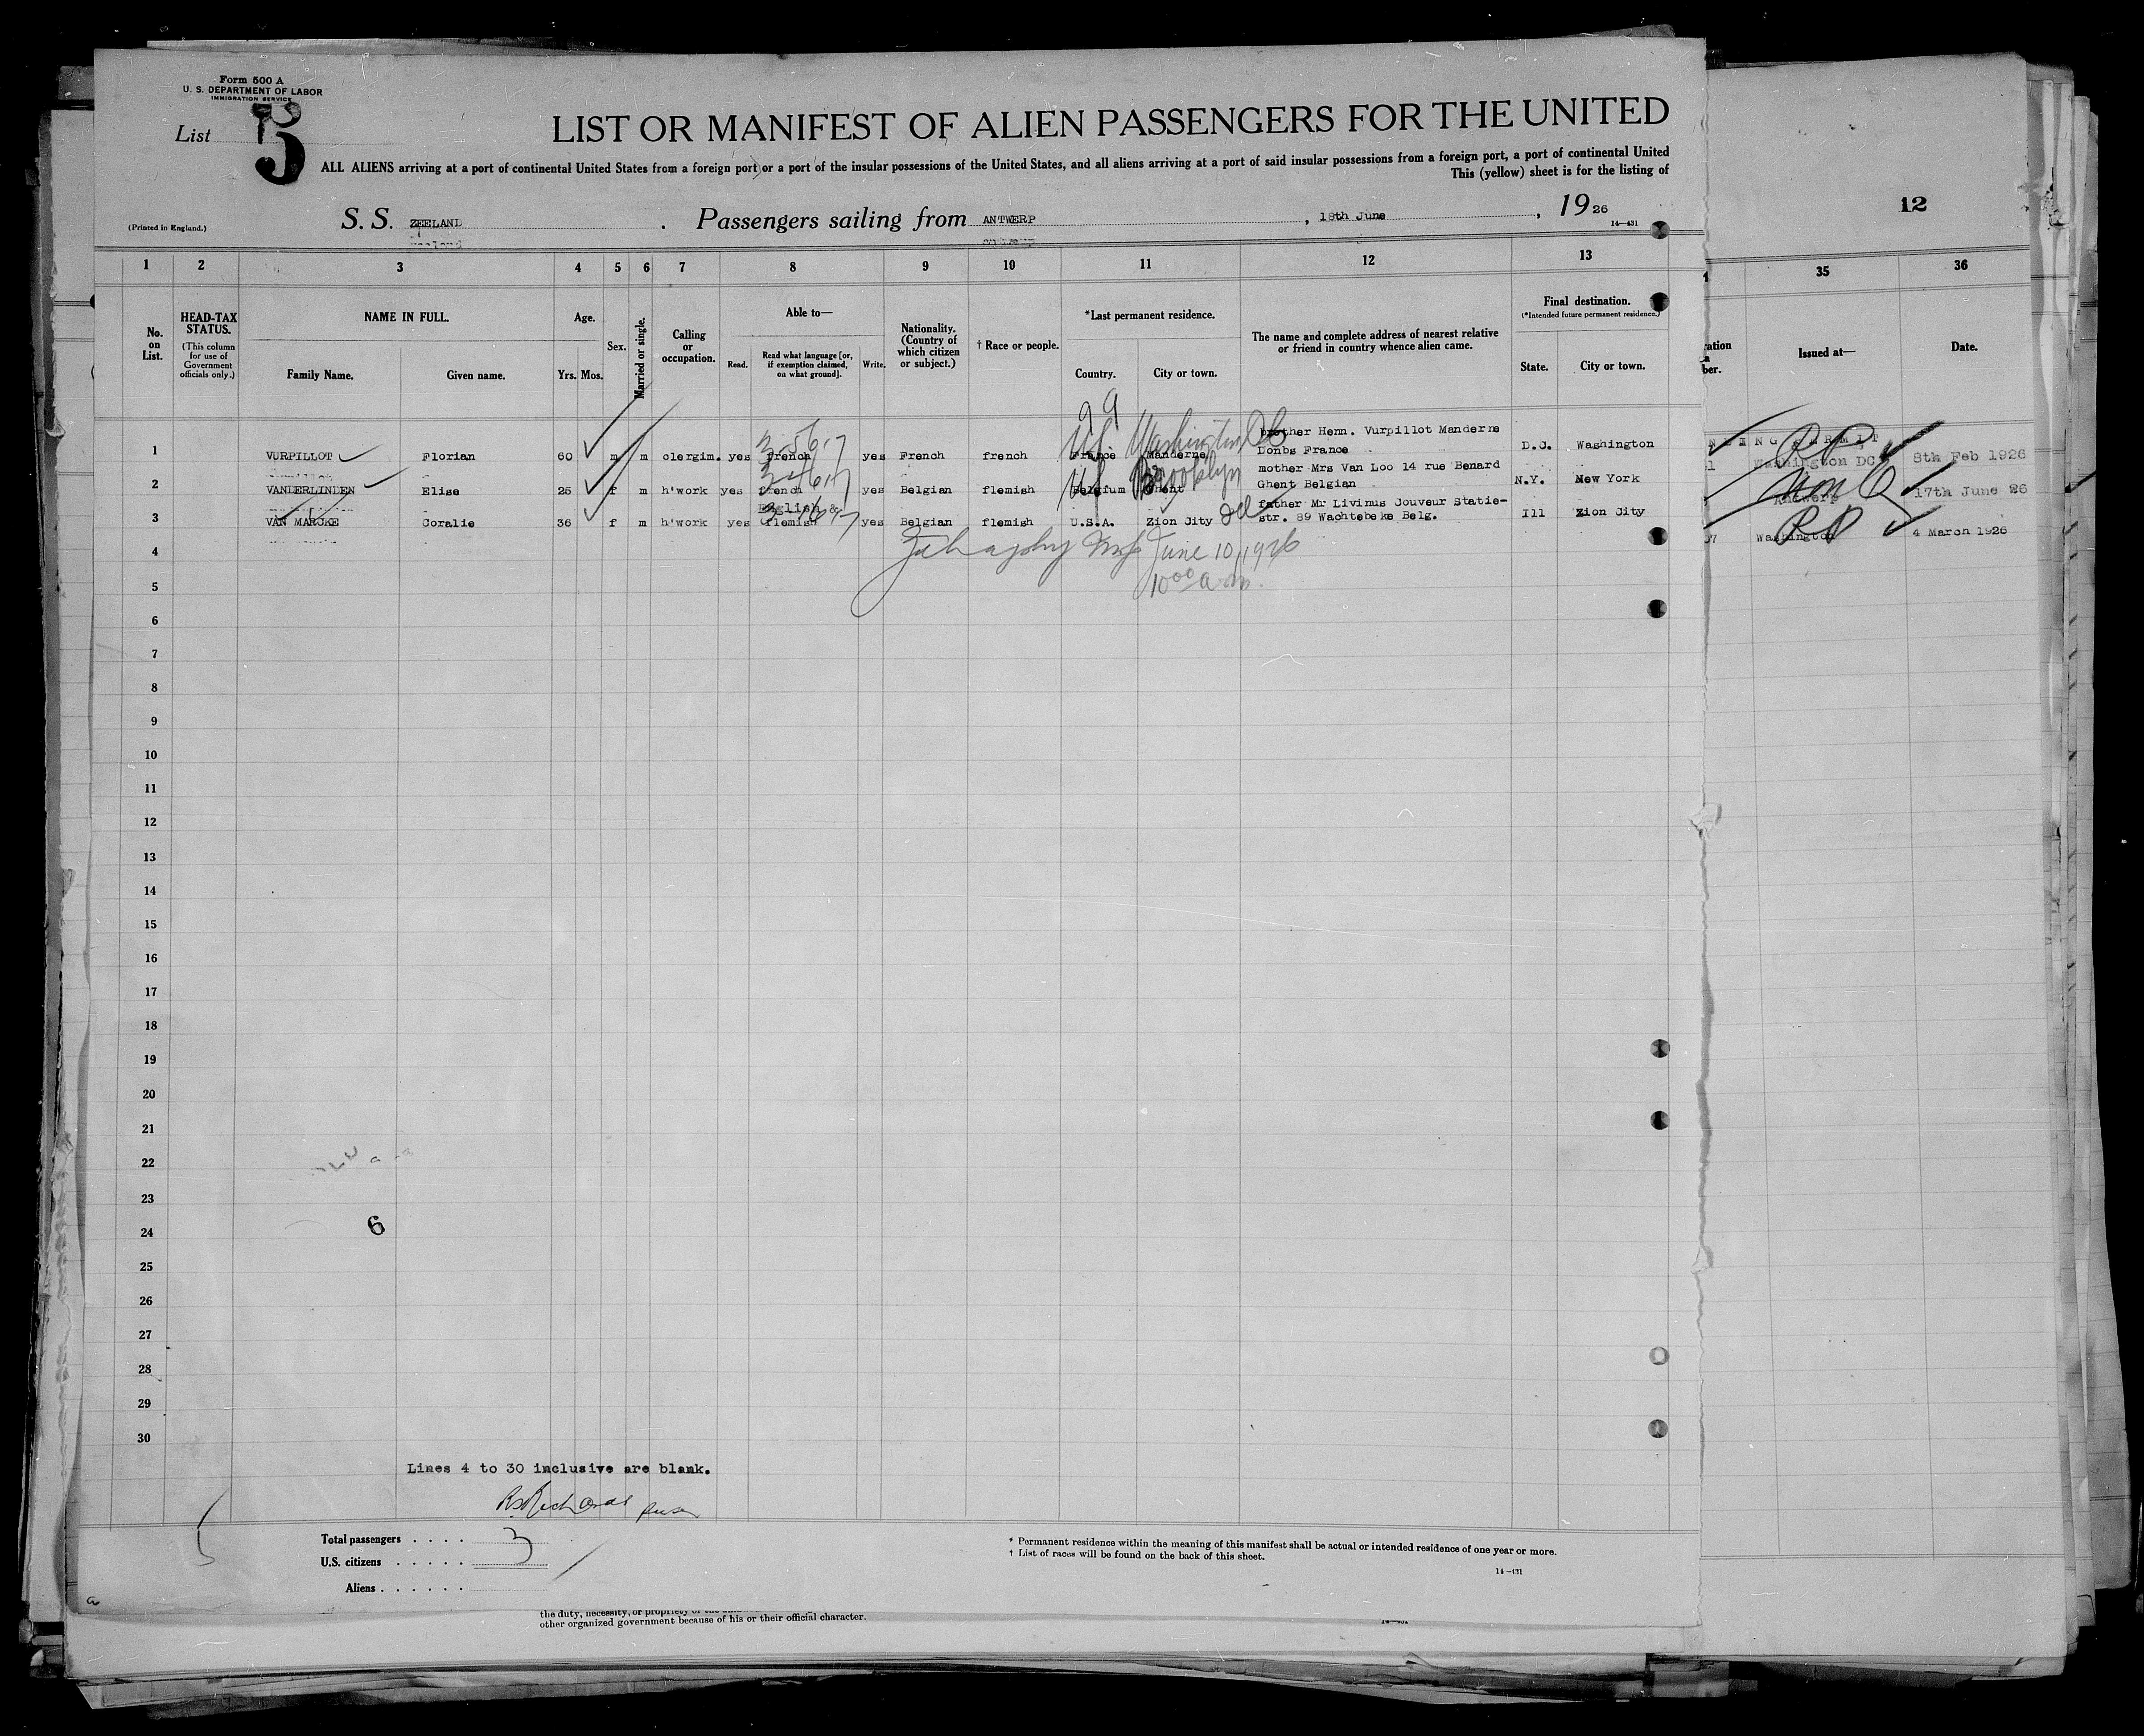 Form 500 A
U. S. DEPARTMENT OF LABOR
IMMIGRATION SERVICE
List 3
LIST OR MANIFEST OF ALIEN PASSENGERS FOR THE UNITED
ALL ALIENS arriving at a port of continental United States from a foreign port or a port of the insular possessions of the United States, and all aliens arriving at a port of said insular possessions from a foreign port, a port of continental United
This (yellow) sheet is for the listing of
(Printed in England.)
S. S. ZEELAND . Passengers sailing from ANTWERP , 18th June , 1926
14—431
12
1 2 3 4 5 6 7 8 9 10 11 12 13 35 36
No. on List.
HEAD-TAX STATUS.
(This column for use of Government officials only.)
NAME IN FULL.
Family Name. Given name.
Age.
Yrs. Mos.
Sex.
Married or single.
Calling or occupation.
Able to—
Read. Read what language [or, if exemption claimed, on what ground]. Write.
Nationality. (Country of which citizen or subject.)
† Race or people.
*Last permanent residence.
Country. City or town.
The name and complete address of nearest relative or friend in country whence alien came.
Final destination.
(*Intended future permanent residence.)
State. City or town.
Issued at— Date.
Washington DC
1 VURPILLOT Florian 60 m m clergim. yes french yes French french France Manderne brother Henn. Vurpillot Manderne
Donbs France D.C. Washington
Washington DC 8th Feb 1926
Brooklyn
2 VANDERLINDEN Elise 26 f m h'work yes french yes Belgian flemish Belgium Ghent mother Mrs Van Loo 14 rue Benard
Ghent Belgian N.Y. New York
Antwerp 17th June 26
3 VAN MARCKE Coralie 36 f m h'work yes English & flemish yes Belgian flemish U.S.A. Zion City father Mr Livinus Couveur Statie-
str. 89 Wachtebeke Belg. Ill Zion City
Washington 4 March 1926
June 10, 1926
10 00 a.m.
4
5
6
7
8
9
10
11
12
13
14
15
16
17
18
19
20
21
22
23
24
6
25
26
27
28
29
30
Lines 4 to 30 inclusive are blank.
Total passengers . . . . 3
U.S. citizens . . . . . .
Aliens . . . . . . .
* Permanent residence within the meaning of this manifest shall be actual or intended residence of one year or more.
† List of races will be found on the back of this sheet.
14—431
other organized government because of his or their official character.